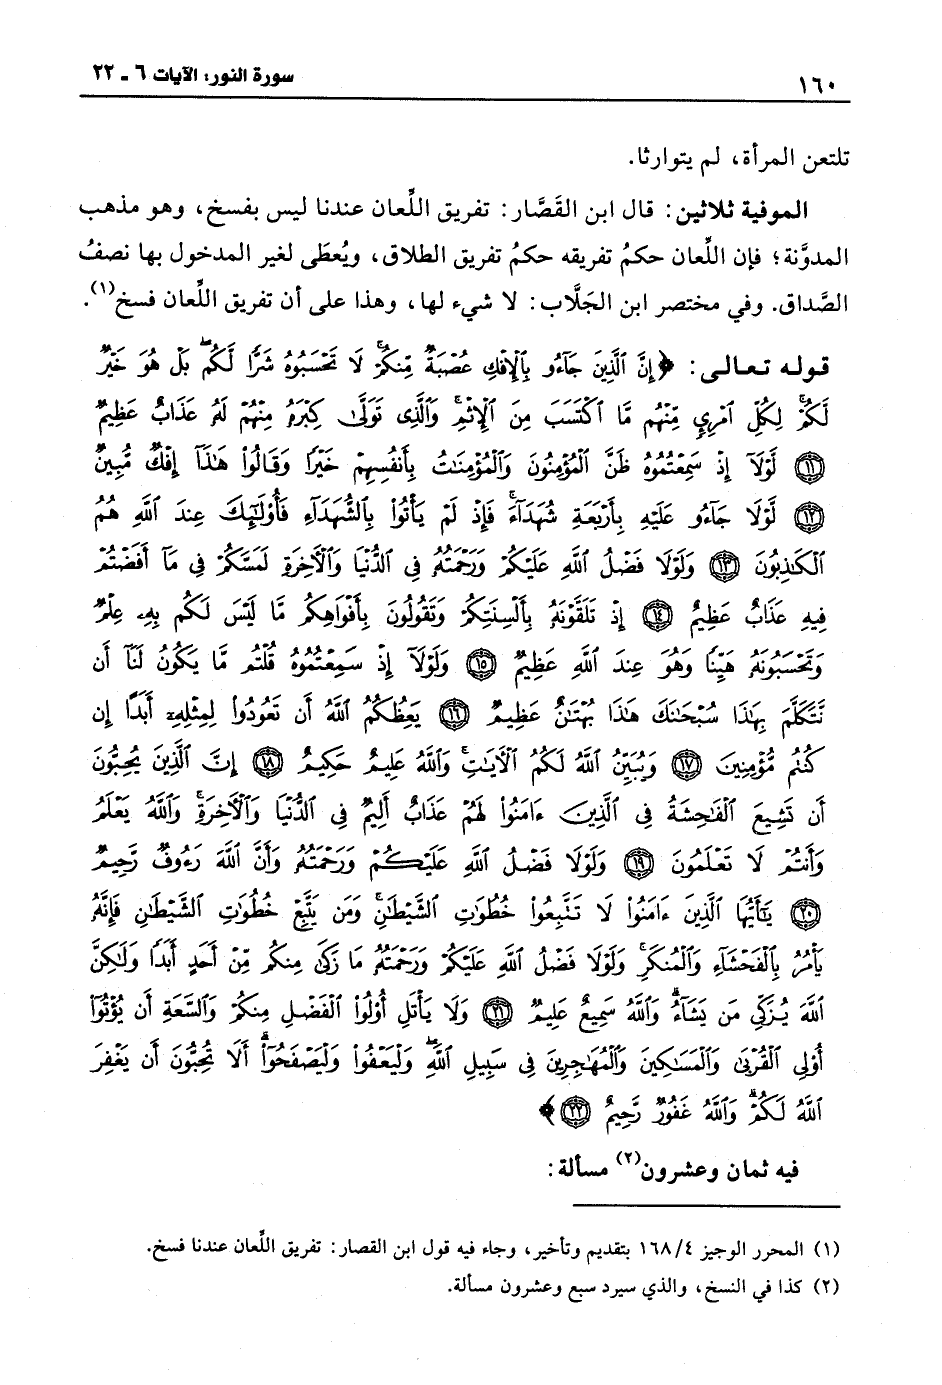 ١٦٠ سورة النور: الآيات ٦ ـ ٢٢
تلتعن المرأة، لم يتوارثا.
الموفية ثلاثين: قال ابن القَصَّار: تفريق اللِّعان عندنا ليس بفسخ، وهو مذهب
المدوَّنة؛ فإن اللِّعان حكمُ تفريقه حكمُ تفريق الطلاق، ويُعطَى لغير المدخول بها نصفُ
الصَّداق. وفي مختصر ابن الجَلَّاب: لا شيء لها، وهذا على أن تفريق اللِّعان فسخ(١).
قوله تعالى: ﴿إِنَّ ٱلَّذِينَ جَآءُو بِٱلْإِفْكِ عُصْبَةٌ مِّنكُمْ ۚ لَا تَحْسَبُوهُ شَرًّا لَّكُم ۖ بَلْ هُوَ خَيْرٌ
لَّكُمْ ۚ لِكُلِّ ٱمْرِئٍ مِّنْهُم مَّا ٱكْتَسَبَ مِنَ ٱلْإِثْمِ ۚ وَٱلَّذِى تَوَلَّىٰ كِبْرَهُۥ مِنْهُمْ لَهُۥ عَذَابٌ عَظِيمٌ
۝١١ لَّوْلَآ إِذْ سَمِعْتُمُوهُ ظَنَّ ٱلْمُؤْمِنُونَ وَٱلْمُؤْمِنَٰتُ بِأَنفُسِهِمْ خَيْرًا وَقَالُوا۟ هَٰذَآ إِفْكٌ مُّبِينٌ
۝١٢ لَّوْلَا جَآءُو عَلَيْهِ بِأَرْبَعَةِ شُهَدَآءَ ۚ فَإِذْ لَمْ يَأْتُوا۟ بِٱلشُّهَدَآءِ فَأُو۟لَٰٓئِكَ عِندَ ٱللَّهِ هُمُ
ٱلْكَٰذِبُونَ ۝١٣ وَلَوْلَا فَضْلُ ٱللَّهِ عَلَيْكُمْ وَرَحْمَتُهُۥ فِى ٱلدُّنْيَا وَٱلْءَاخِرَةِ لَمَسَّكُمْ فِى مَآ أَفَضْتُمْ
فِيهِ عَذَابٌ عَظِيمٌ ۝١٤ إِذْ تَلَقَّوْنَهُۥ بِأَلْسِنَتِكُمْ وَتَقُولُونَ بِأَفْوَاهِكُم مَّا لَيْسَ لَكُم بِهِۦ عِلْمٌ
وَتَحْسَبُونَهُۥ هَيِّنًا وَهُوَ عِندَ ٱللَّهِ عَظِيمٌ ۝١٥ وَلَوْلَآ إِذْ سَمِعْتُمُوهُ قُلْتُم مَّا يَكُونُ لَنَآ أَن
نَّتَكَلَّمَ بِهَٰذَا سُبْحَٰنَكَ هَٰذَا بُهْتَٰنٌ عَظِيمٌ ۝١٦ يَعِظُكُمُ ٱللَّهُ أَن تَعُودُوا۟ لِمِثْلِهِۦٓ أَبَدًا إِن
كُنتُم مُّؤْمِنِينَ ۝١٧ وَيُبَيِّنُ ٱللَّهُ لَكُمُ ٱلْءَايَٰتِ ۚ وَٱللَّهُ عَلِيمٌ حَكِيمٌ ۝١٨ إِنَّ ٱلَّذِينَ يُحِبُّونَ
أَن تَشِيعَ ٱلْفَٰحِشَةُ فِى ٱلَّذِينَ ءَامَنُوا۟ لَهُمْ عَذَابٌ أَلِيمٌ فِى ٱلدُّنْيَا وَٱلْءَاخِرَةِ ۚ وَٱللَّهُ يَعْلَمُ
وَأَنتُمْ لَا تَعْلَمُونَ ۝١٩ وَلَوْلَا فَضْلُ ٱللَّهِ عَلَيْكُمْ وَرَحْمَتُهُۥ وَأَنَّ ٱللَّهَ رَءُوفٌ رَّحِيمٌ
۝٢٠ يَٰٓأَيُّهَا ٱلَّذِينَ ءَامَنُوا۟ لَا تَتَّبِعُوا۟ خُطُوَٰتِ ٱلشَّيْطَٰنِ ۚ وَمَن يَتَّبِعْ خُطُوَٰتِ ٱلشَّيْطَٰنِ فَإِنَّهُۥ
يَأْمُرُ بِٱلْفَحْشَآءِ وَٱلْمُنكَرِ ۚ وَلَوْلَا فَضْلُ ٱللَّهِ عَلَيْكُمْ وَرَحْمَتُهُۥ مَا زَكَىٰ مِنكُم مِّنْ أَحَدٍ أَبَدًا وَلَٰكِنَّ
ٱللَّهَ يُزَكِّى مَن يَشَآءُ ۗ وَٱللَّهُ سَمِيعٌ عَلِيمٌ ۝٢١ وَلَا يَأْتَلِ أُو۟لُوا۟ ٱلْفَضْلِ مِنكُمْ وَٱلسَّعَةِ أَن يُؤْتُوٓا۟
أُو۟لِى ٱلْقُرْبَىٰ وَٱلْمَسَٰكِينَ وَٱلْمُهَٰجِرِينَ فِى سَبِيلِ ٱللَّهِ ۖ وَلْيَعْفُوا۟ وَلْيَصْفَحُوٓا۟ ۗ أَلَا تُحِبُّونَ أَن يَغْفِرَ
ٱللَّهُ لَكُمْ ۗ وَٱللَّهُ غَفُورٌ رَّحِيمٌ ۝٢٢﴾
فيه ثمان وعشرون(٢) مسألة:
(١) المحرر الوجيز ١٦٨/٤ بتقديم وتأخير، وجاء فيه قول ابن القصار: تفريق اللِّعان عندنا فسخ.
(٢) كذا في النسخ، والذي سيرد سبع وعشرون مسألة.